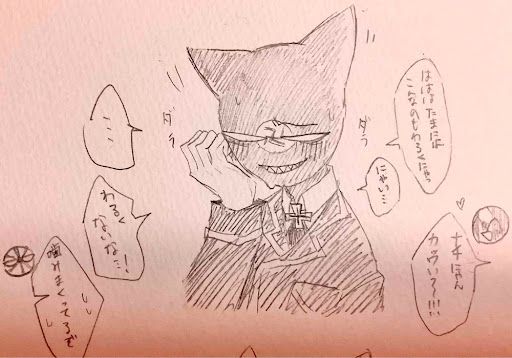 はははたまには
こんなのもわるくにゃっ
にゃい…
ダラ
ダラ
ナチにゃん
カワイイ〜!!!
…
わるく
ないな…!
噛みまくってるぞ